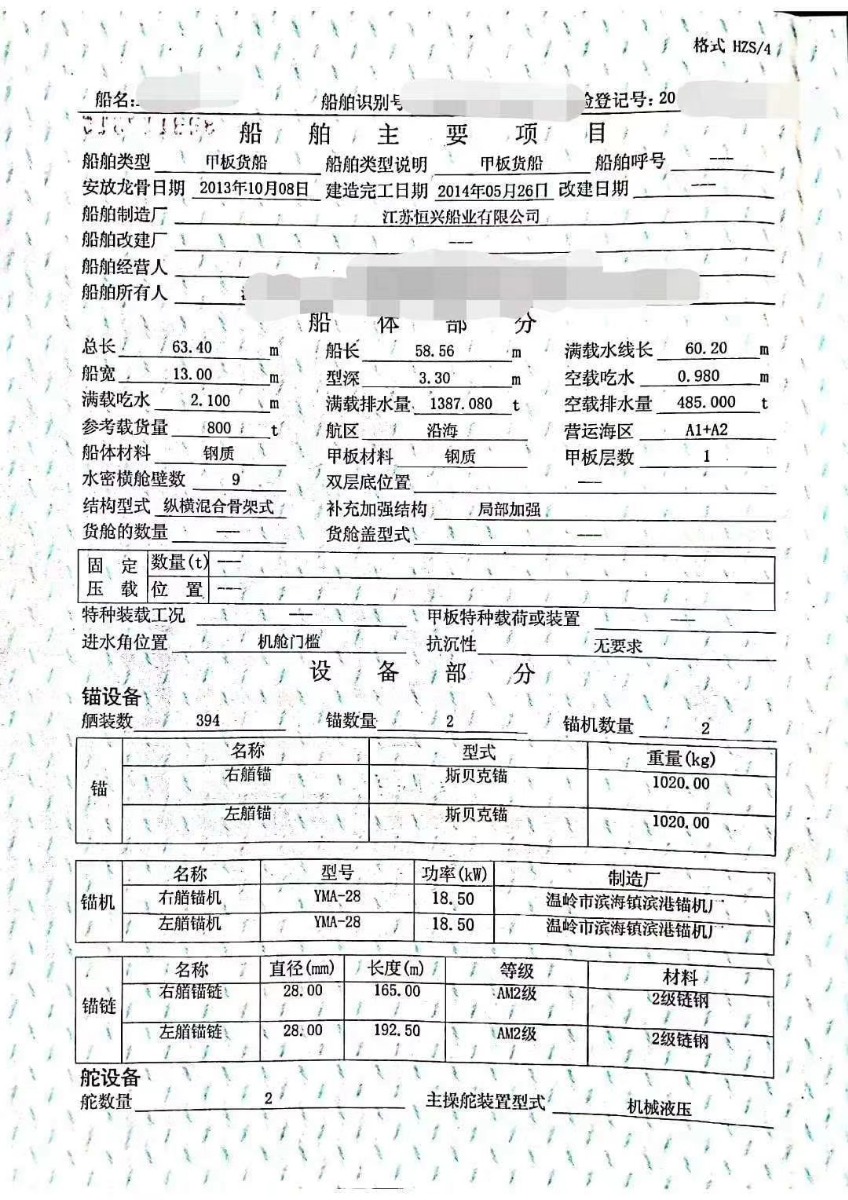 格式 HZS/4
船名: 船舶识别号 登记号: 20
船舶主要项目
船舶类型 甲板货船 船舶类型说明 甲板货船 船舶呼号 ---
安放龙骨日期 2013年10月08日 建造完工日期 2014年05月26日 改建日期 ---
船舶制造厂 江苏恒兴船业有限公司
船舶改建厂 ---
船舶经营人
船舶所有人
船体部分
总长 63.40 m 船长 58.56 m 满载水线长 60.20 m
船宽 13.00 m 型深 3.30 m 空载吃水 0.980 m
满载吃水 2.100 m 满载排水量 1387.080 t 空载排水量 485.000 t
参考载货量 800 t 航区 沿海 营运海区 A1+A2
船体材料 钢质 甲板材料 钢质 甲板层数 1
水密横舱壁数 9 双层底位置 ---
结构型式 纵横混合骨架式 补充加强结构 局部加强
货舱的数量 --- 货舱盖型式 ---
固定 数量(t) ---
压载 位置 ---
特种装载工况 --- 甲板特种载荷或装置 ---
进水角位置 机舱门槛 抗沉性 无要求
设备部分
锚设备
舾装数 394 锚数量 2 锚机数量 2
名称 型式 重量(kg)
右艏锚 斯贝克锚 1020.00
锚
左艏锚 斯贝克锚 1020.00
名称 型号 功率(kW) 制造厂
锚机 右艏锚机 YMA-28 18.50 温岭市滨海镇滨港锚机厂
左艏锚机 YMA-28 18.50 温岭市滨海镇滨港锚机厂
名称 直径(mm) 长度(m) 等级 材料
右艏锚链 28.00 165.00 AM2级 2级链钢
锚链
左艏锚链 28.00 192.50 AM2级 2级链钢
舵设备
舵数量 2 主操舵装置型式 机械液压